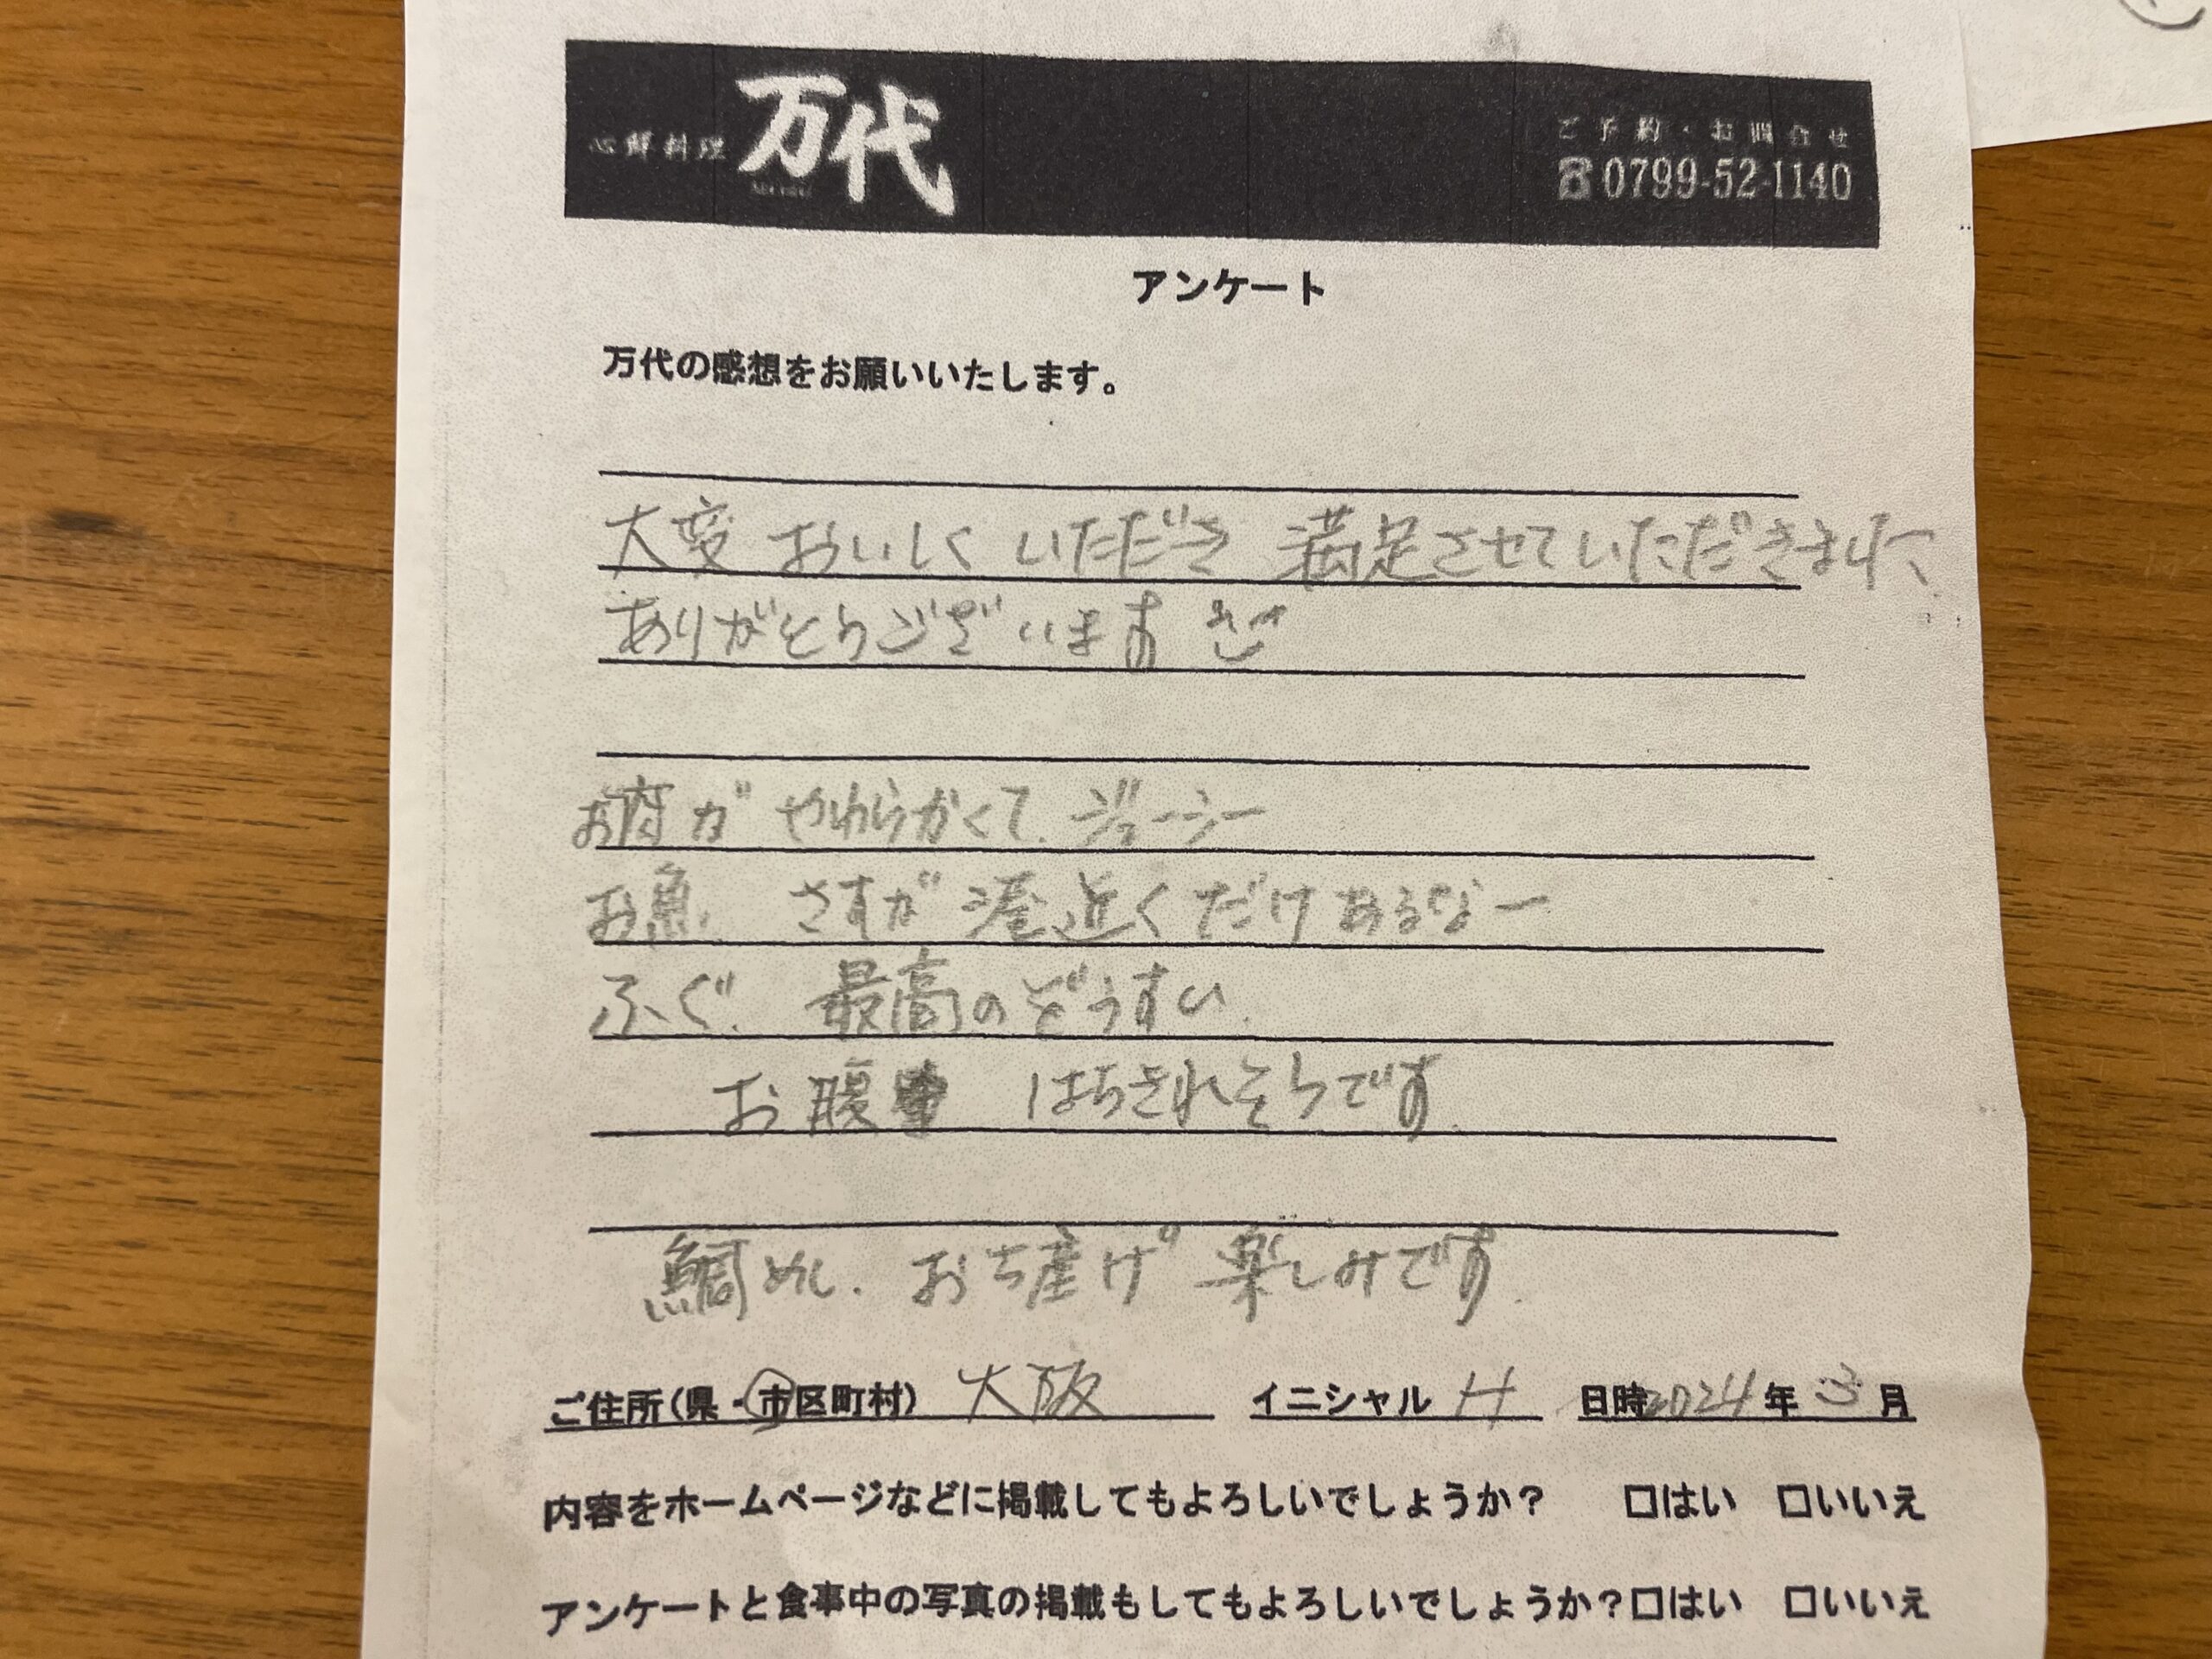 心鮮料理 万代
ご予約・お問合せ
☎0799-52-1140
アンケート
万代の感想をお願いいたします。
大変 おいしく いただき 満足させていただきました
ありがとうございます
お肉が やわらかくて. ジューシー
お魚. さすが 港近くだけあるなー
ふぐ. 最高のぞうすい.
お腹 はちきれそうです.
鯛めし. おち産げ 楽しみです.
ご住所(県・市区町村) 大阪 イニシャル H 日時2024年 3月
内容をホームページなどに掲載してもよろしいでしょうか? □はい □いいえ
アンケートと食事中の写真の掲載もしてもよろしいでしょうか?□はい □いいえ